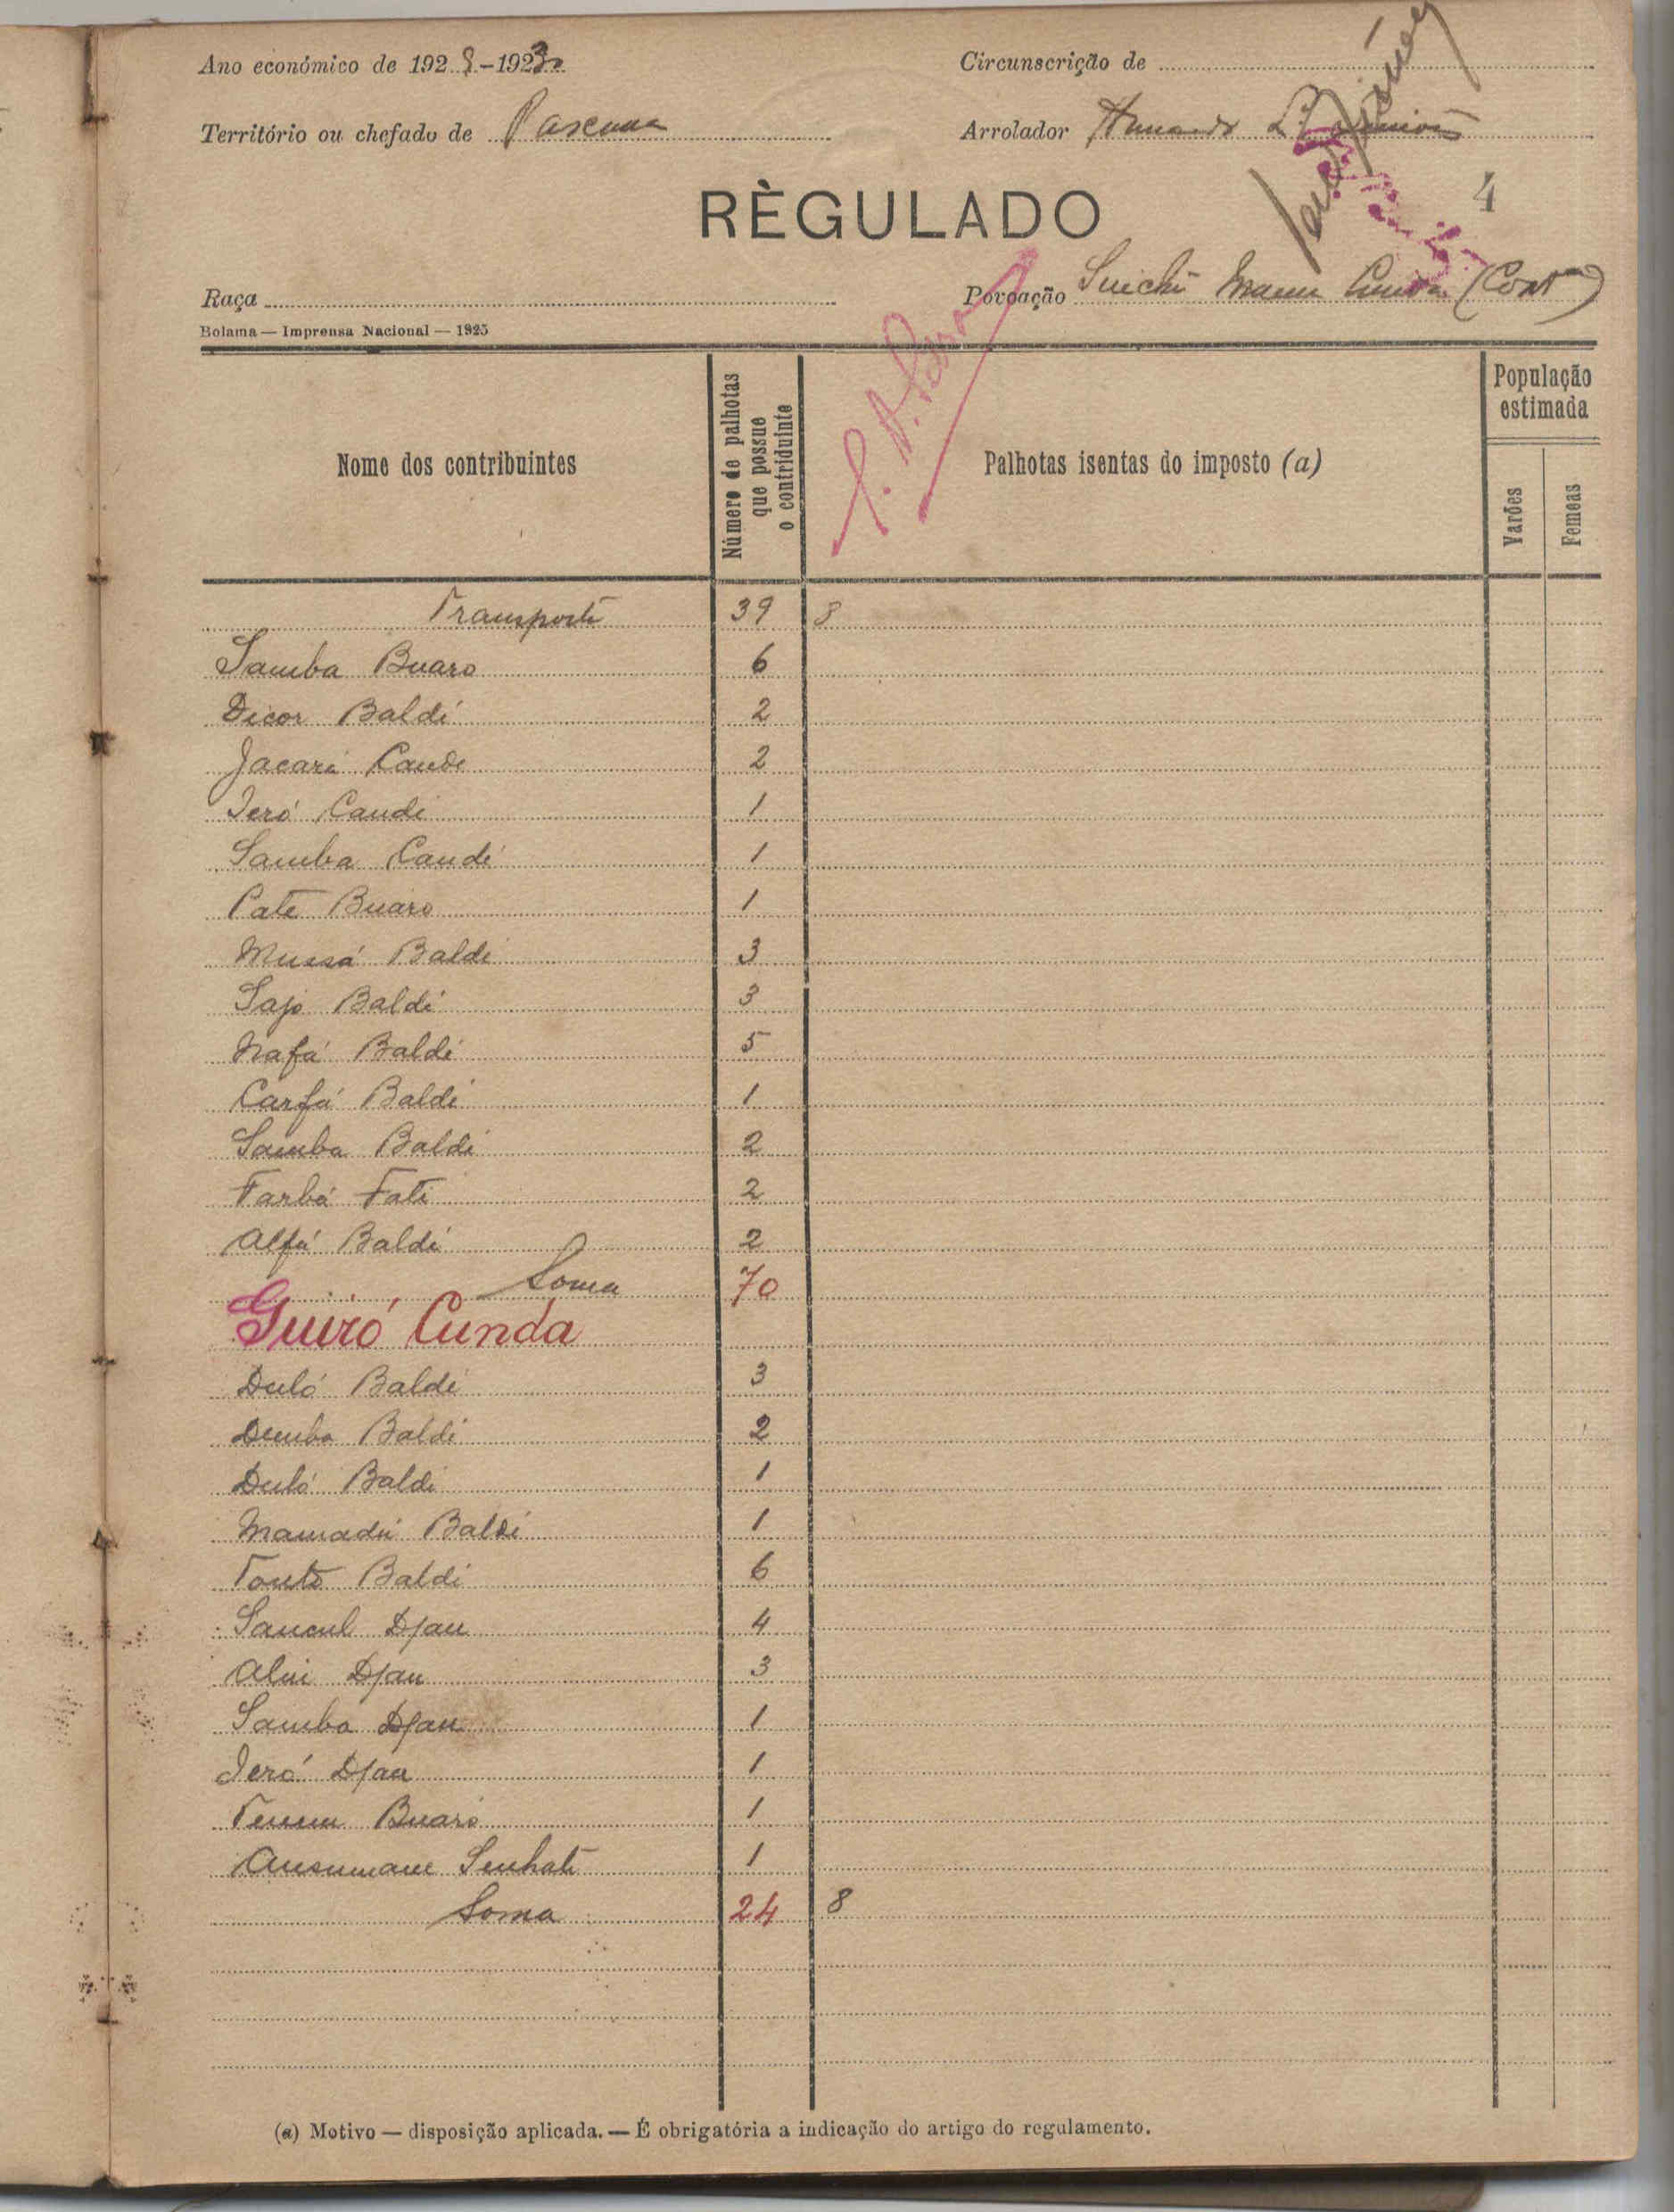 Ano económico de 192 -192
Circunscrição de
Território ou chefado de
Arrolador
RÈGULADO
4
Raça
Povoação Cunda (Cont)
Bolama — Imprensa Nacional — 1925
Nome dos contribuintes
Número de palhotas que possue o contriduinte
Palhotas isentas do imposto (a)
População estimada
Varões
Femeas
Transporte 39 8
Samba Buaro 6
Dicor Baldé 2
Jacari Candé 2
Jeró Candé 1
Samba Candé 1
Paté Buaro 1
Mussá Baldé 3
Sajo Baldé 3
Nafá Baldé 5
Carfá Baldé 1
Samba Baldé 2
Farbá Fati 2
Alfá Baldé 2
Soma 70
Guiró Cunda
Duló Baldé 3
Demba Baldé 2
Duló Baldé 1
Mamadú Baldé 1
Baldé 6
Djau 4
Djau 3
Samba Djau 1
Jeró Djau 1
Buaró 1
Ansumane 1
Soma 24 8
(a) Motivo — disposição aplicada. — É obrigatória a indicação do artigo do regulamento.